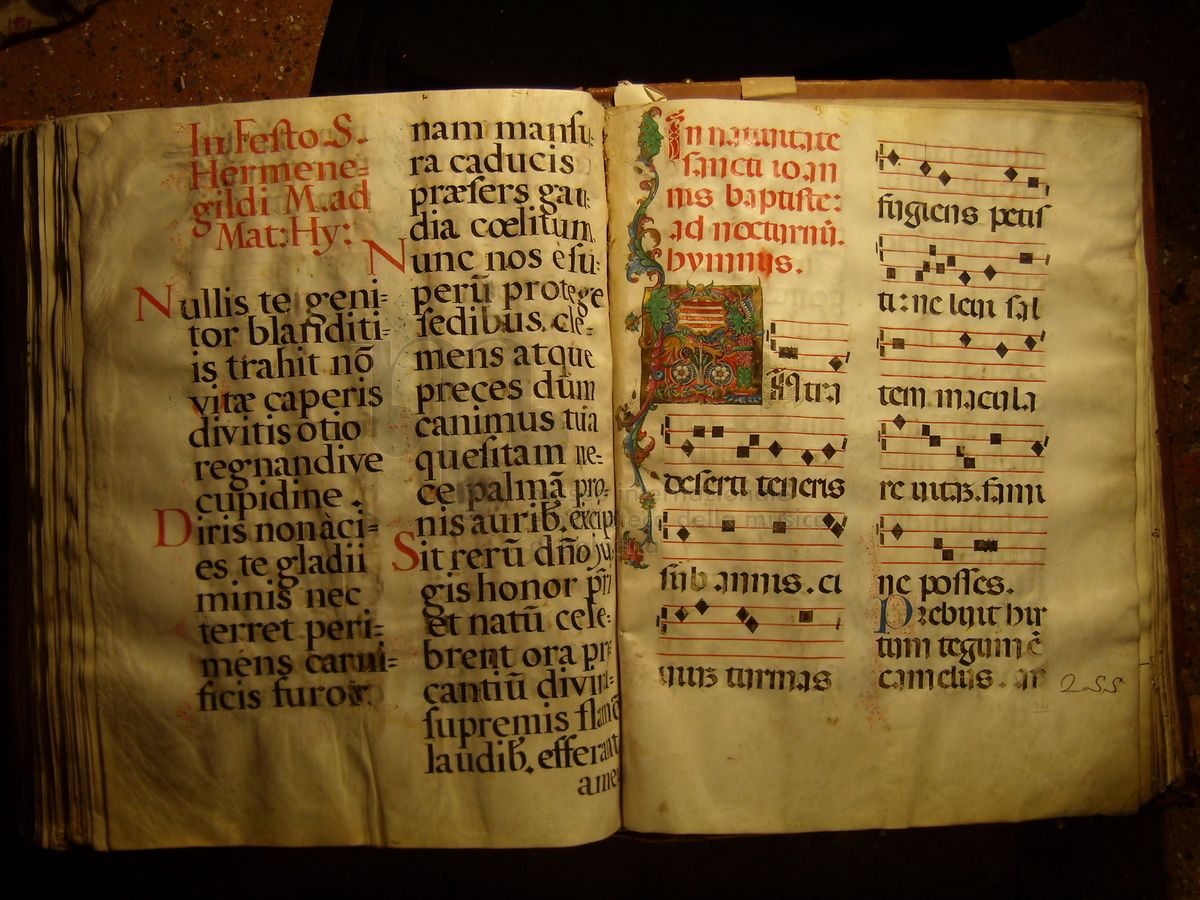 In Festo S.
Hermene=
gildi M. ad
Mat: Hy:
Nullis te geni=
tor blanditi=
is trahit nō
vitæ caperis
divitis otio
regnandive
cupidine.
Diris non aci=
es te gladii
minis nec
terret peri=
mens carni=
ficis furor.
nam mansu
ra caducis
præfers gau
dia cœlitum
Nunc nos è su:
perū protege
sedibus. cle=
mens atque
preces dum
canimus tua
quesitam ne=
ce palmā pro=
nis aurib. excip
Sit rerū dño ju
gis honor pri
et natū cele=
brent ora pr
cantiū divin
supremis flanē
laudib. efferant
ame
In natiuitate
sancti ioan
nis baptiste:
ad nocturnū.
hymnus.
Antra
deserti teneris
sub annis. ci
uiuꝫ turmas
fugiens petis
ti: ne leui sal
tem macula
re uitaꝫ. fami
ne posses.
Prebuit hir
tum tegumē
camelus. ar
255